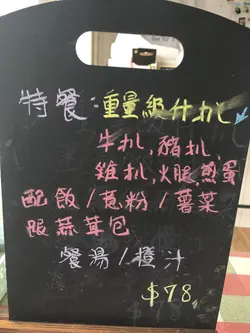 特餐：重量級什扒
牛扒,豬扒,
雞扒,火腿,煎蛋
配飯/意粉/薯菜
跟蒜茸包
餐湯/橙汁
$78